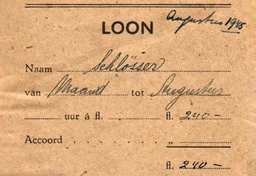 Augustus 1945
LOON
Naam Schlösser
van Maand tot Augustus
uur à fl. fl. 240 —
Accoord „
fl. 240 —